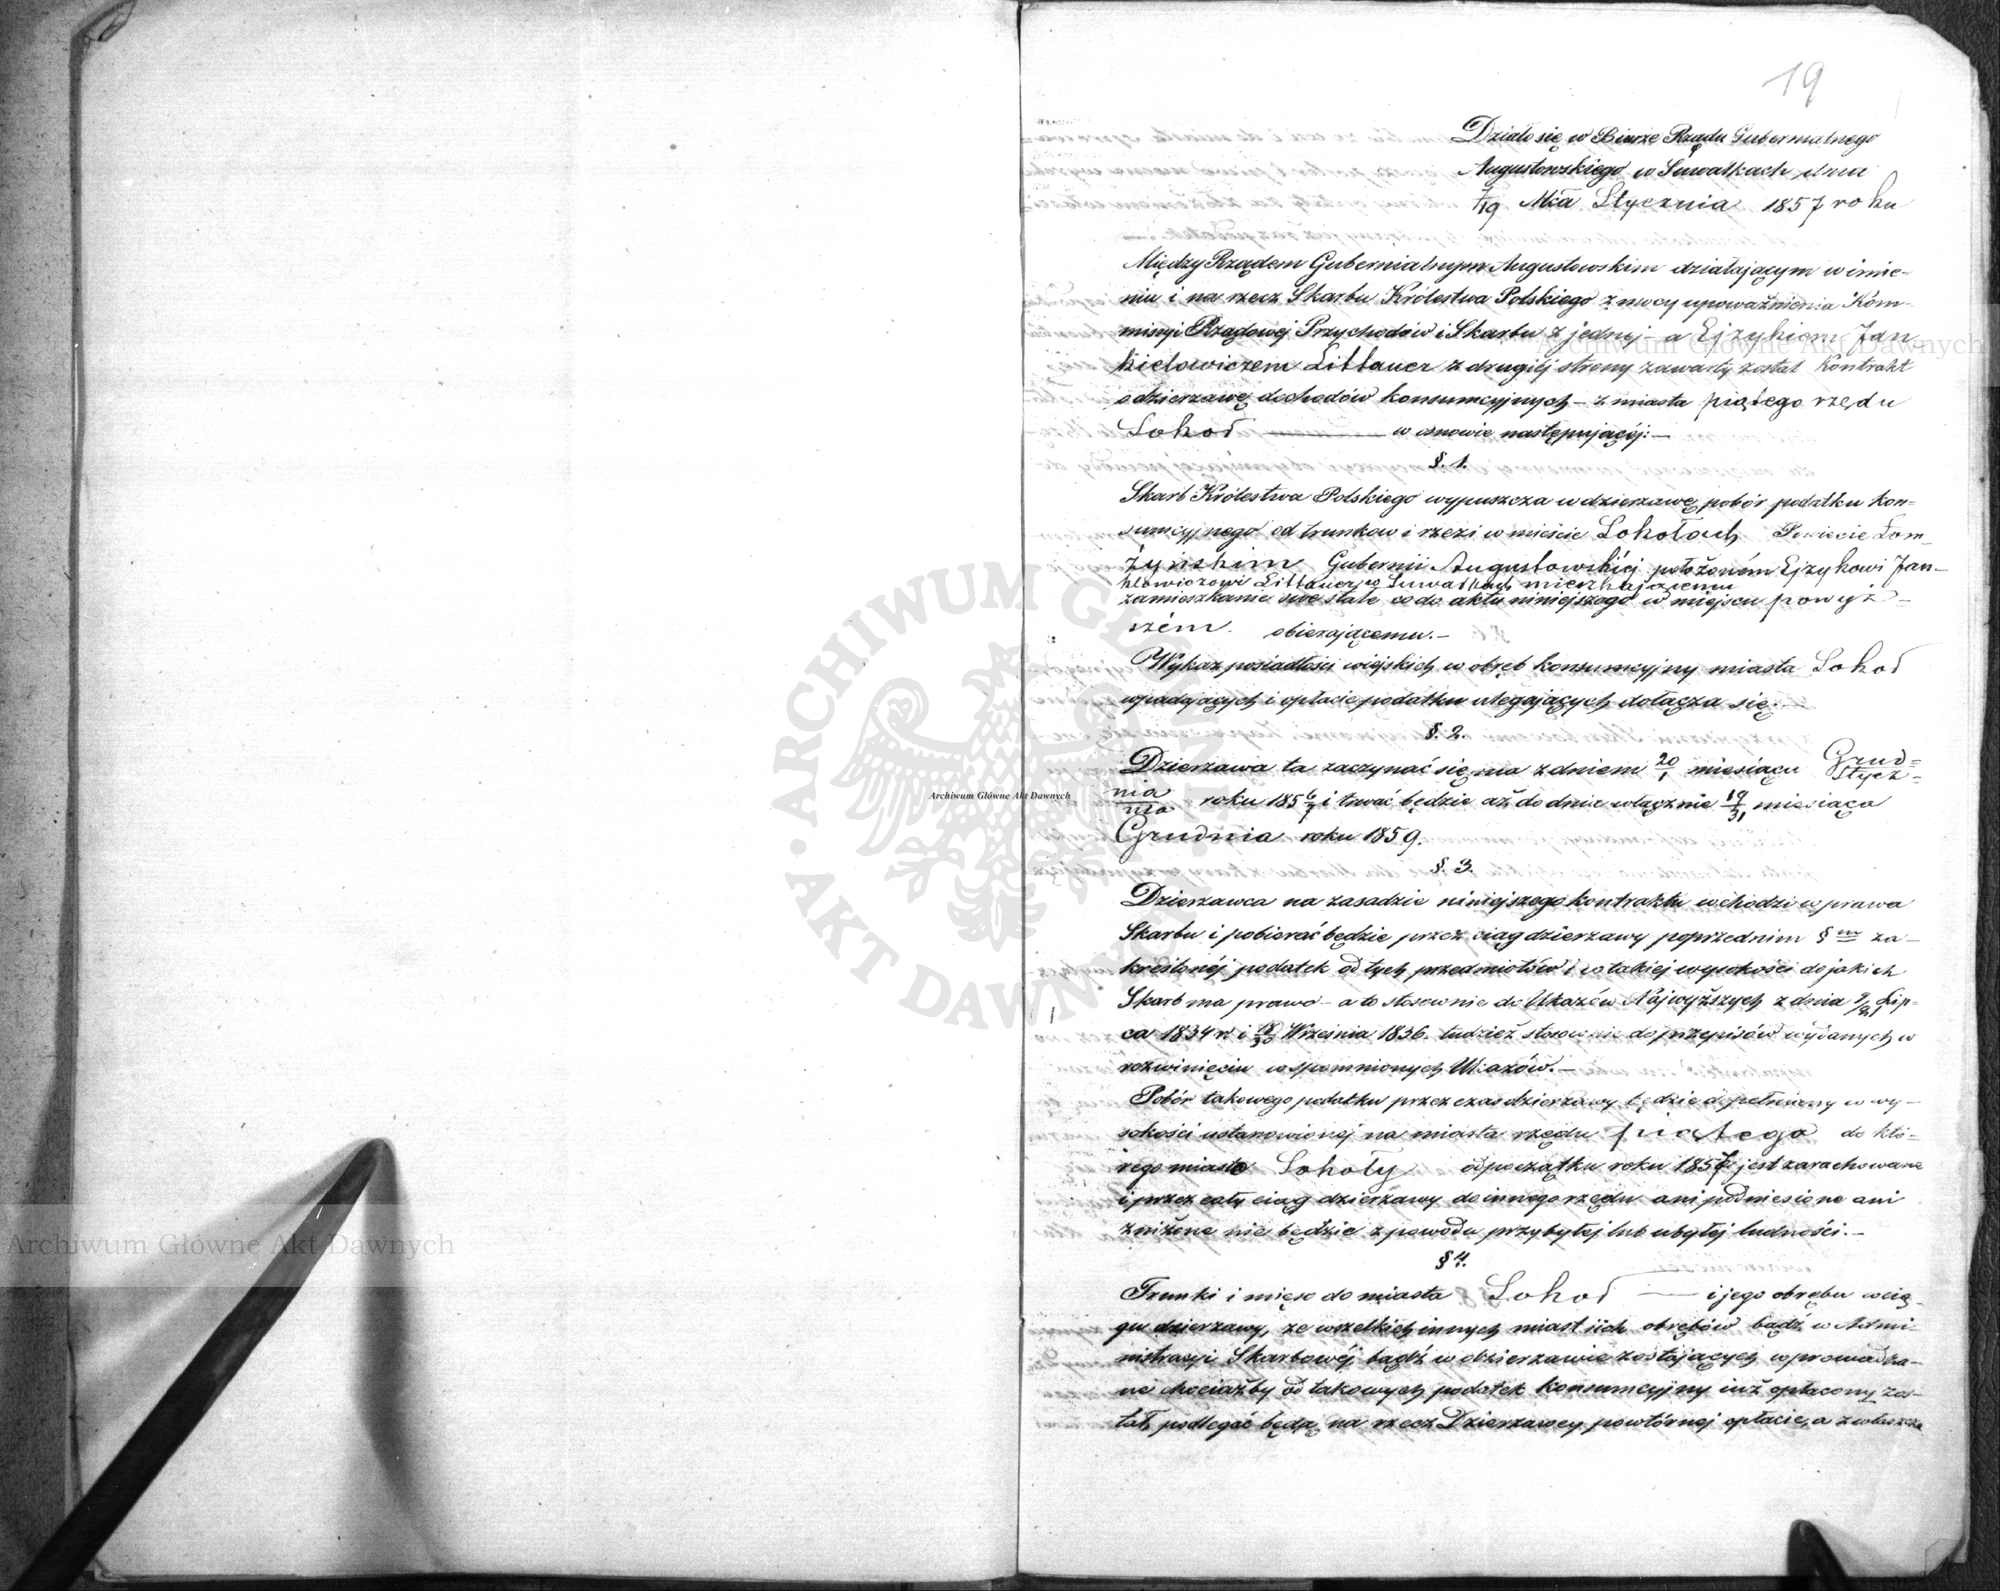 19
Działo się w Biurze Rządu Gubernialnego
Augustowskiego w Suwałkach, dnia
7/19 Mca Stycznia 1857 roku
Między Rządem Gubernialnym Augustowskim działającym w imie-
niu i na rzecz Skarbu Królestwa Polskiego z mocy upoważnienia Kom-
misyi Rządowej Przychodów i Skarbu z jednej – a Ejzykiem Jan-
kielowiczem Littauer z drugiéj strony zawarty został Kontrakt
o dzierzawę dochodów konsumcyjnych – z miasta piątego rzędu
Sokoł ——— w osnowie następującéj: —
§. 1.
Skarb Królestwa Polskiego wypuszcza w dzierzawę pobór podatku kon-
sumcyjnego od trunkow i rzezi w mieście Sokołach Powiecie Łom-
żyńskim Gubernii Augustowskiéj położoném Ejzykowi Jan-
klowiczowi Littauer, w Suwałkach mieszkającemu
zamieszkanie swe stałe co do aktu niniejszego w miejscu powyż-
szém obierającemu. —
Wykaz posiadłości wiejskich w obręb konsumcyjny miasta Sokoł
wpadających i opłacie podatku ulegających dołącza się. —
§. 2.
Dzierzawa ta zaczynać się ma z dniem 20/1 miesiąca Grud=
Stycz=
nia
nia roku 1856/7 i trwać będzie aż do dnia włącznie 19/31 miesiąca
Grudnia roku 1859.
§. 3.
Dzierzawca na zasadzie niniejszego kontraktu wchodzi w prawa
Skarbu i pobierać będzie przez ciąg dzierzawy poprzednim § m za-
kreślonéj podatek od tych przedmiotów i w takiej wysokości do jakich
Skarb ma prawo – a to stosownie do Ukazów Najwyższych z dnia 9/21 Lip-
ca 1834 r. i 18/30 Września 1836. tudzież stosownie do przepisów wydanych w
rozwinięciu wspomnionych Ukazów. —
Pobór takowego podatku przez czas dzierzawy będzie dopełniany w wy-
sokości ustanowionej na miasta rzędu piątego do któ-
rego miasto Sokoły od początku roku 1857 jest zarachowane
i przez cały ciąg dzierżawy do innego rzędu ani podniesione ani
zniżone nie będzie z powodu przybyłej lub ubyłéj ludności. —
§ 4.
Trunki i mięso do miasta Sokoł —— i jego obrębu w cią-
gu dzierzawy, ze wszelkich innych miast i ich obrębów bądź w Admi-
nistracyi Skarbowéj bądź w dzierzawie zostających wprowadza-
ne chociażby od takowych podatek konsumcyjny już opłacony zo-
stał, podlegać będą na rzecz Dzierzawcy powtórnej opłacie, a zwłaszcza
Archiwum Główne Akt Dawnych
Archiwum Główne Akt Dawnych
Archiwum Główne Akt Dawnych
ARCHIWUM GŁÓWNE AKT DAWNYCH